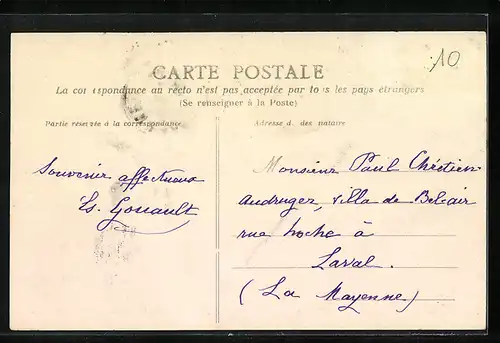 10
CARTE POSTALE
La correspondance au recto n'est pas acceptée par tous les pays étrangers
(Se renseigner à la Poste)
Partie réservée à la correspondance
Adresse du destinataire
Souvenir affectueux
Gouault
Monsieur Paul Chrétien
villa de Belair
rue Hoche à
Laval.
(La Mayenne)